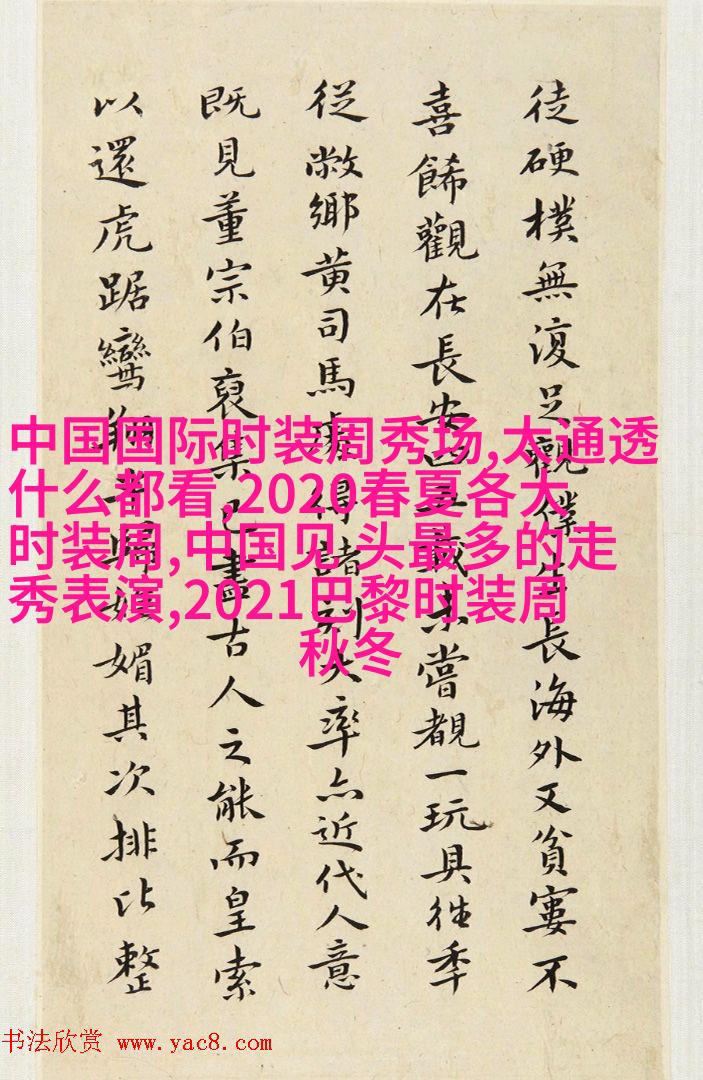 中国国际时装周秀场,太通透
什么都看,2020春夏各大
时装周,中国见 头最多的走
秀表演,2021巴黎时装周
秋冬
徒硬樸無復足觀僕生長海外又貧窶不
喜觀在長安載未嘗覩一玩具往季
從敝鄉黃司馬處得諸刻大率亦近代人意
既見董宗伯裒集已盡古人之能而皇索
以還虎踞鸞翔者媚其次排比整
书法欣赏 www.yac8.com